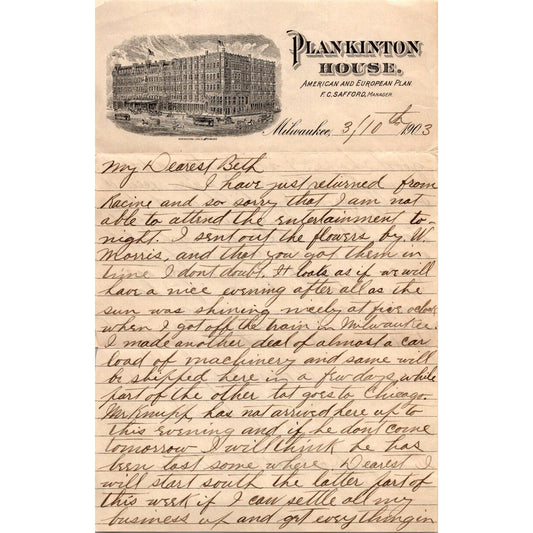 PLANKINTON
HOUSE.
AMERICAN AND EUROPEAN PLAN.
F. C. SAFFORD, MANAGER.
Milwaukee, 3/10th 1903
My Dearest Beth
I have just returned from
Racine and so sorry that I am not
able to attend the entertainment to-
night. I sent out the flowers by W.
Morris, and that you got them in
time I dont doubt. It looks as if we will
have a nice evening after all as the
sun was shining nicely at five oclock
when I got off the train in Milwaukee.
I made another deal of almost a car
load of machinery and same will
be shipped here in a few days, while
part of the other lot goes to Chicago.
Mr Knupp has not arrived here up to
this evening and if he dont come
tomorrow I will think he has
been lost some where. Dearest I
will start south the latter part of
this week if I can settle all my
business up and get everything in